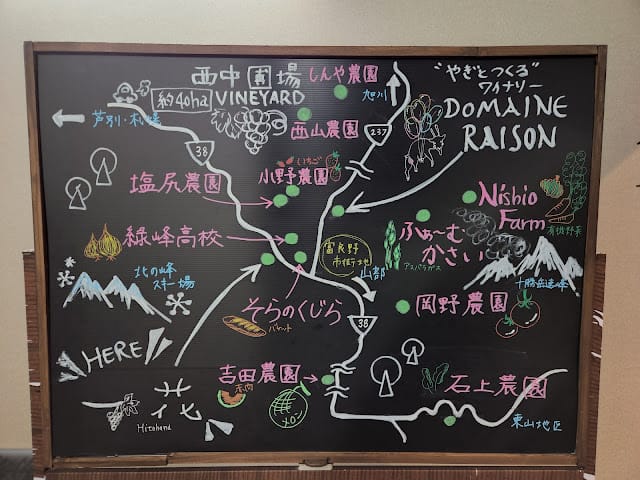 西中圃場
約40ha
VINEYARD
しんや農園
旭川
"やぎとつくる"
ワイナリー
DOMAINE
RAISON
芦別・札幌
38
西山農園
237
いちご
小野農園
塩尻農園
Nishio
Farm
有機野菜
緑峰高校
富良野
市街地
ふぁーむ
かさい
アスパラガス
北の峰
スキー場
山部
十勝岳連峰
そらのくじら
バゲット
岡野農園
38
HERE
吉田農園
赤肉
メロン
石上農園
一花
Hitohana
東山地区